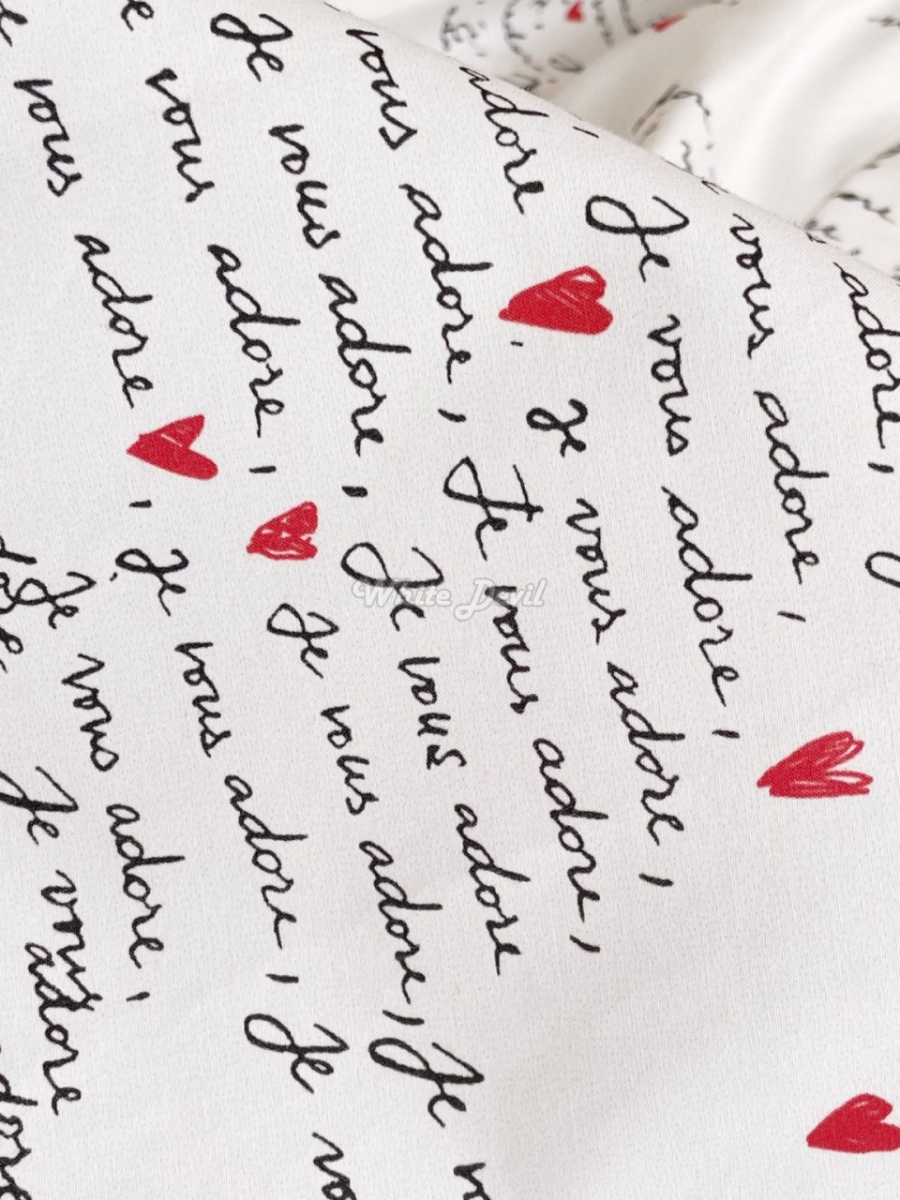 adore,
vous adore,
Je vous adore,
adore, je vous adore,
vous adore, Je vous adore,
Je vous adore, Je vous adore
vous adore, Je vous adore, Je
vous adore, Je vous adore, Je
Je vous adore,
Je vous
adore
White Devil